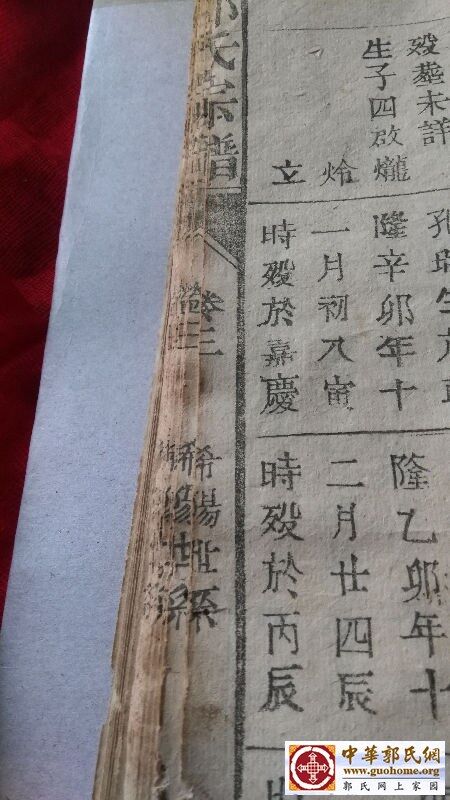 殁葬未詳
生子四
立
隆辛卯年十
一月初八寅
時殁於嘉慶
隆乙卯年十
二月廿四辰
時殁於丙辰
氏宗譜
卷三
陽世系
中華郭氏網
www.guohome.org
郭氏网上家园